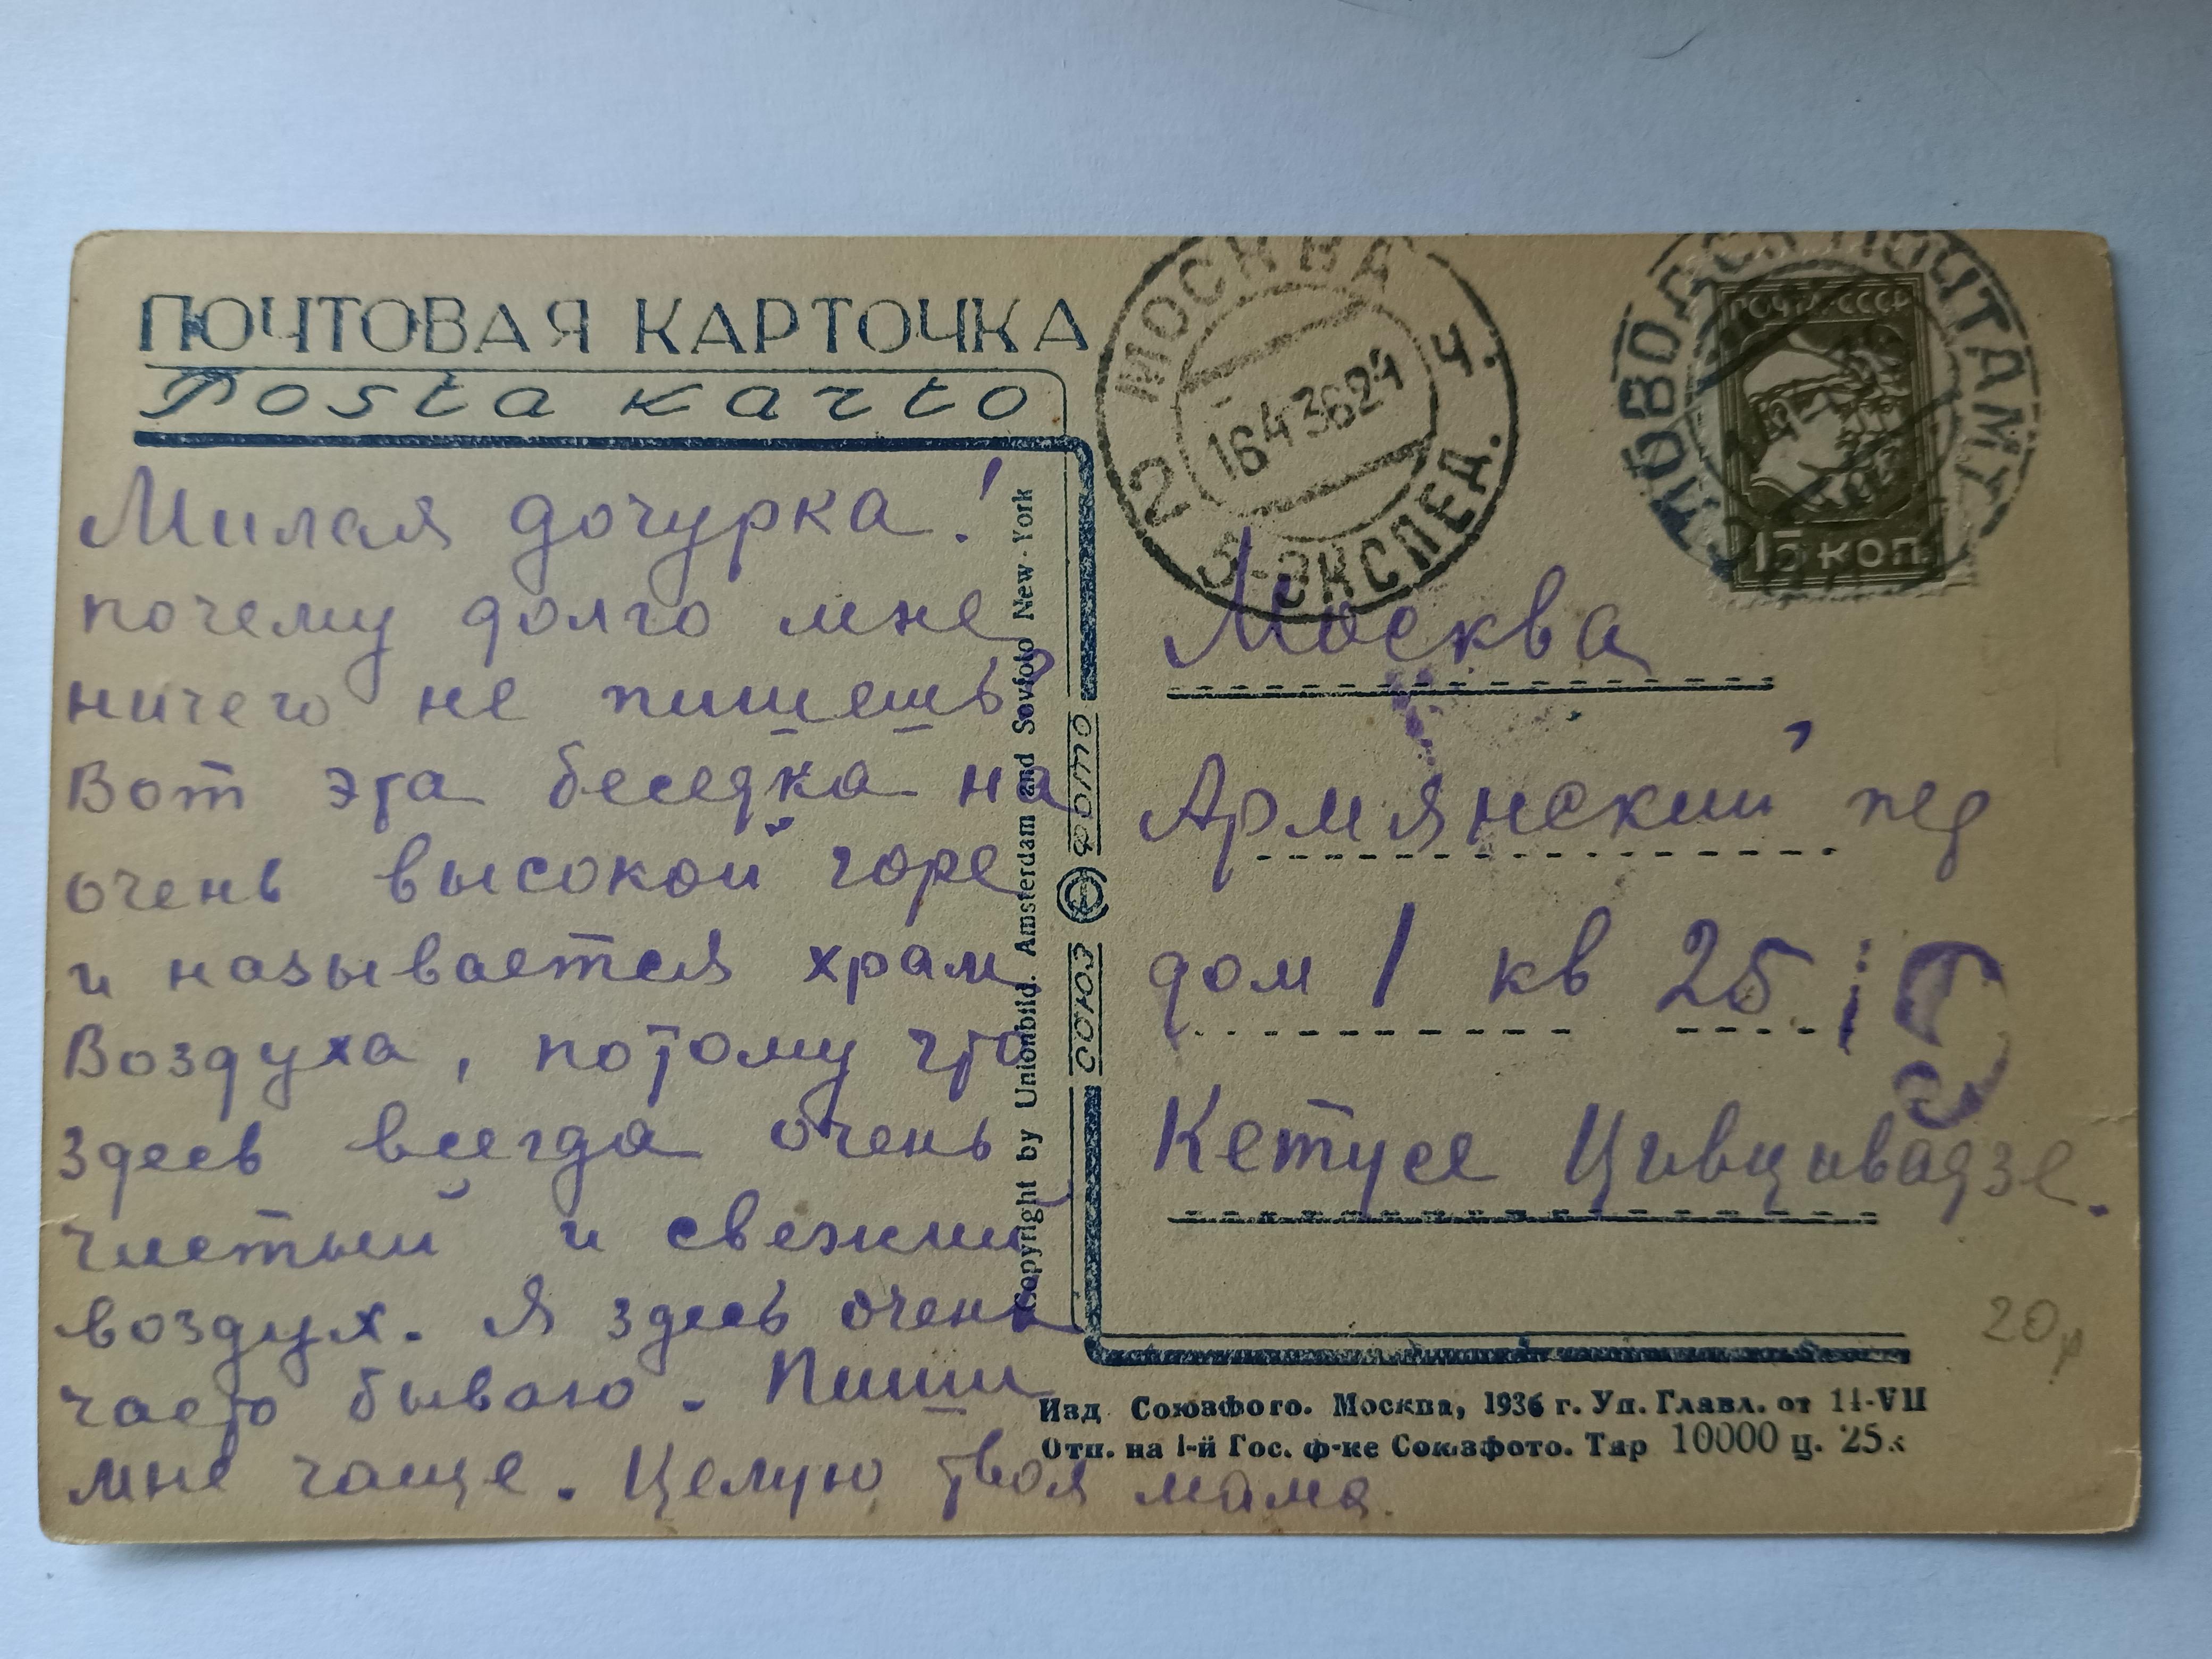 ПОЧТОВАЯ КАРТОЧКА
Posta karto
Милая дочурка!
почему долго мне
ничего не пишешь?
Вот эта беседка на
очень высокой горе
и называется храм
Воздуха, потому что
здесь всегда очень
чистый и свежий
воздух. Я здесь очень
часто бываю. Пиши
мне чаще. Целую твоя мама.
Copyright by Unionbild. Amsterdam and Sovfoto New-York
СОЮЗ ФОТО
МОСКВА
1643621
Ч.
2
5-ЭКСПЕД.
ПОЧТА СССР
15 КОП.
ПОЧТАМТ
Москва
Армянский пер
дом 1 кв 25
Кетусе Цивцивадзе.
20р
Изд Союзфото. Москва, 1936 г. Уп. Главл. от 14-VII
Отп. на 1-й Гос. ф-ке Союзфото. Тир 10000 ц. 25к